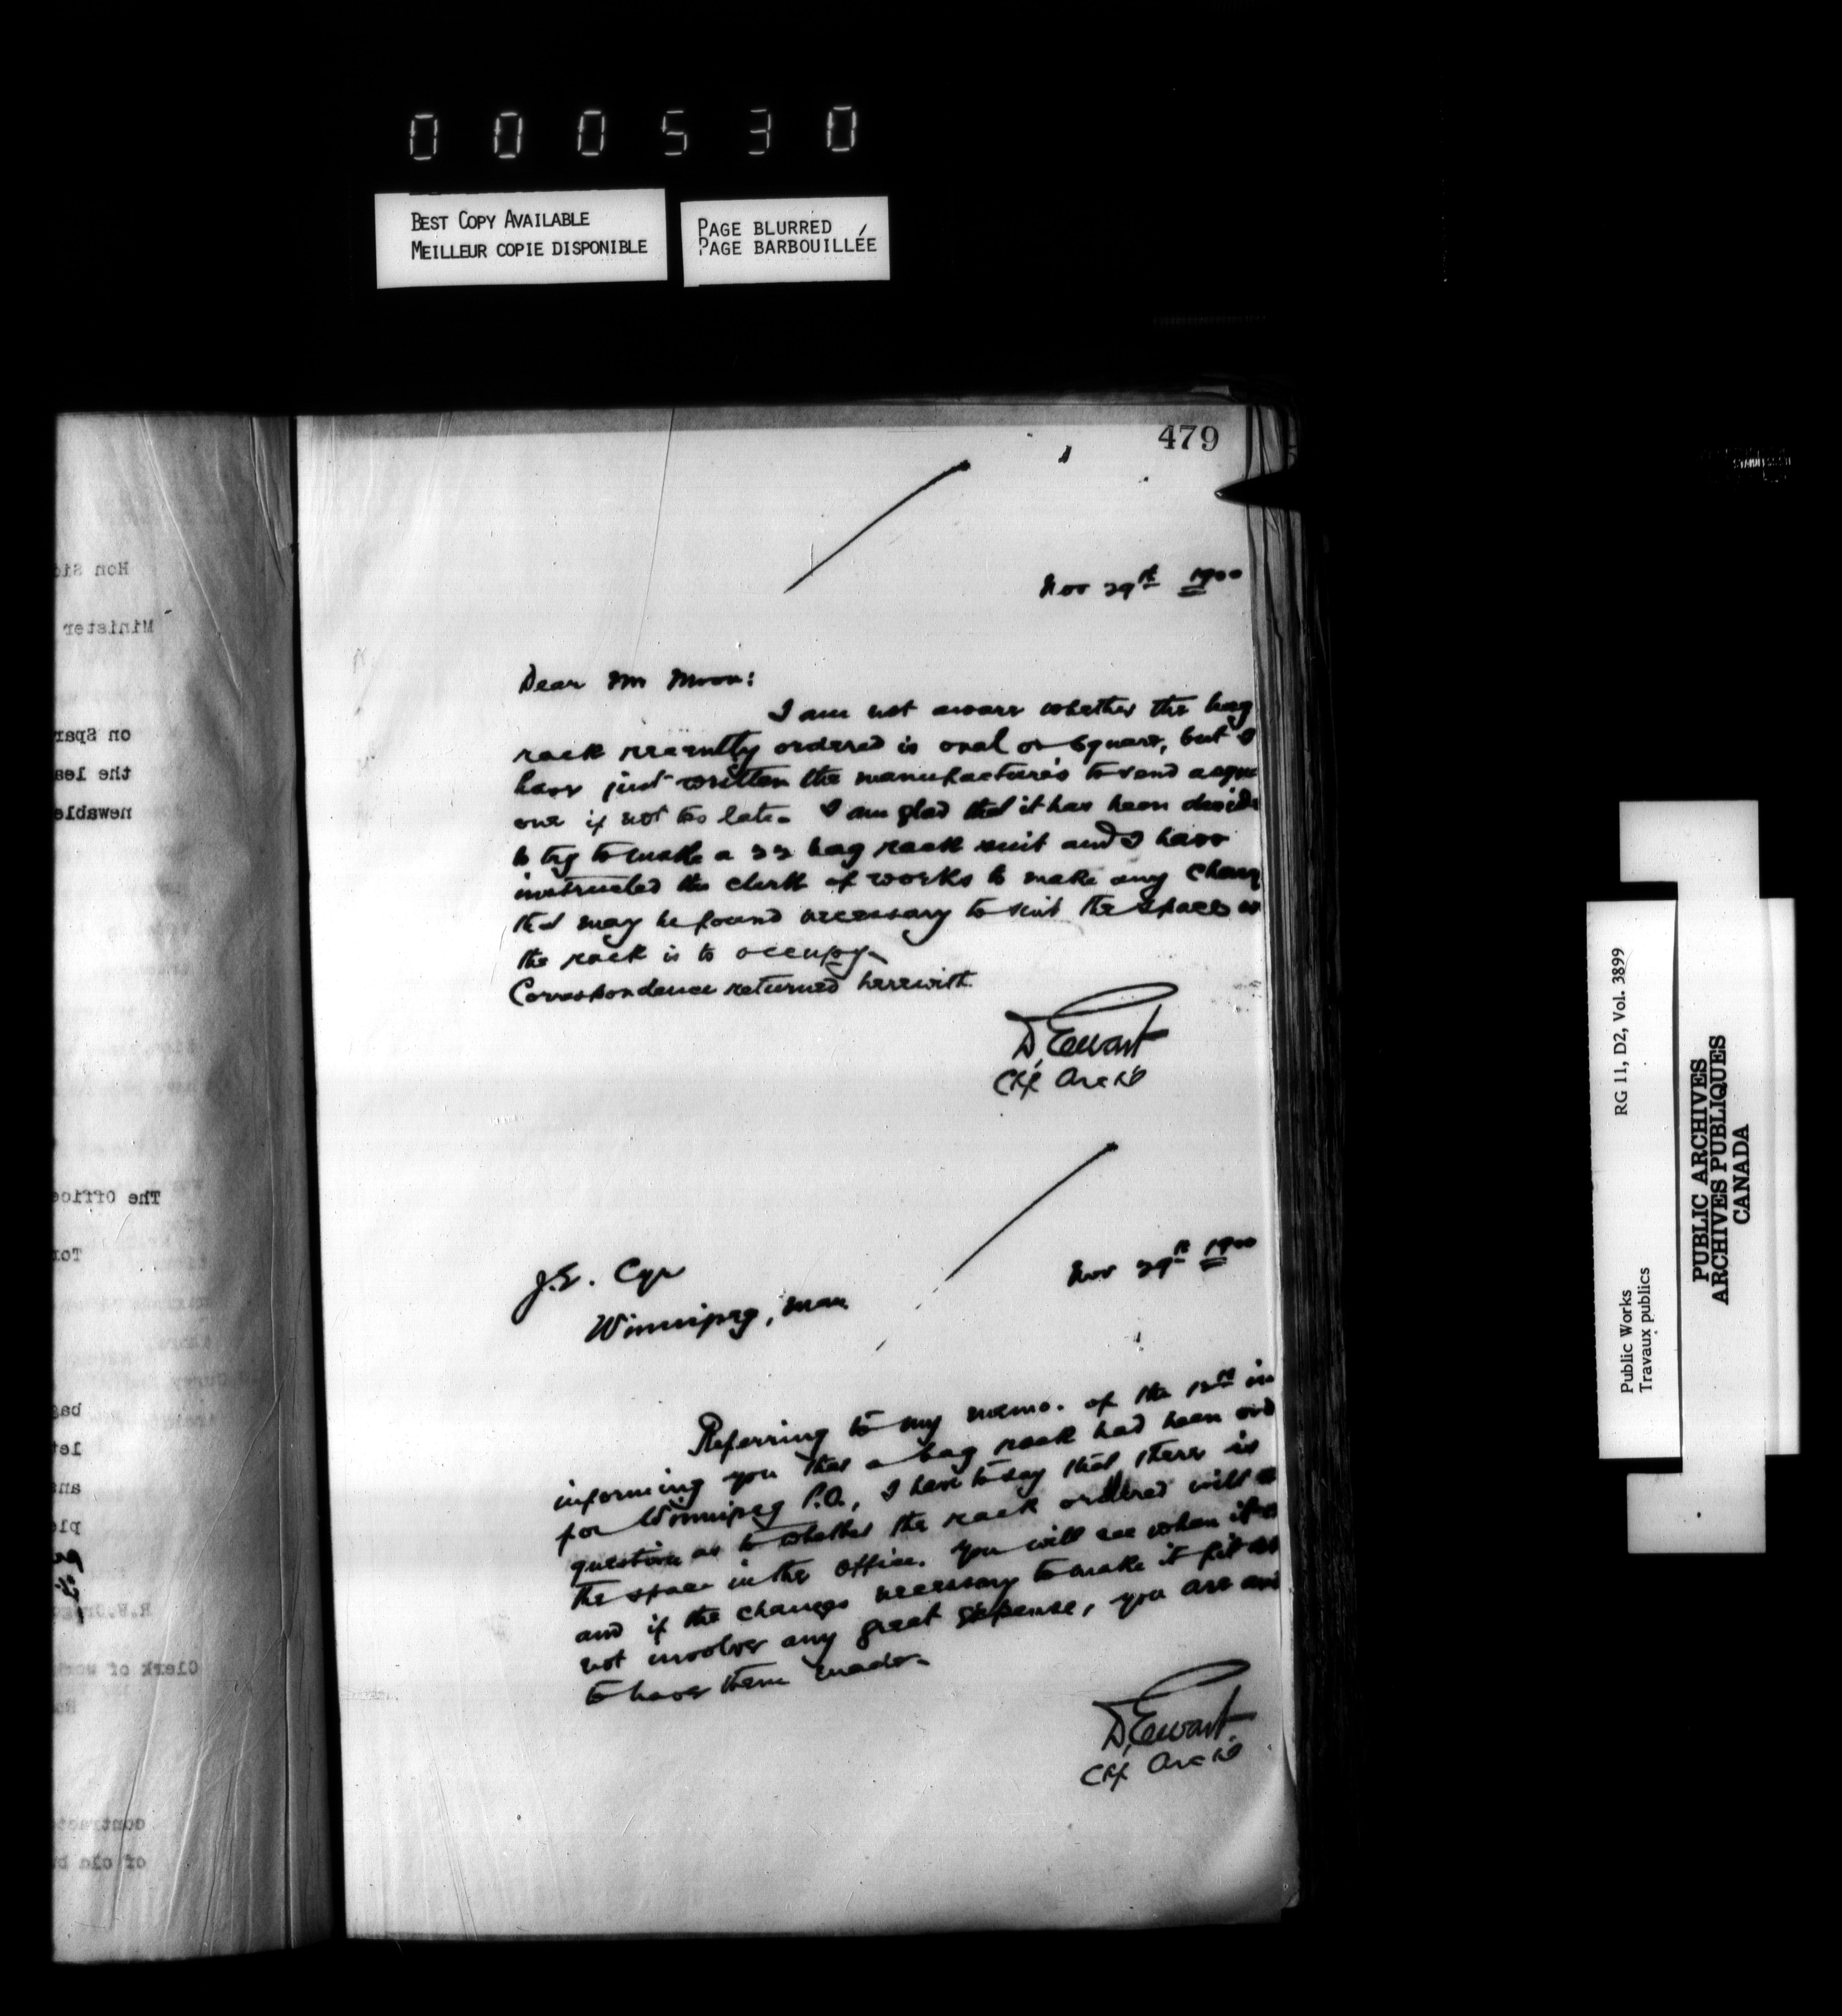 000530
BEST COPY AVAILABLE
MEILLEUR COPIE DISPONIBLE
PAGE BLURRED
PAGE BARBOUILLÉE
479
Nov 29th 1900
Dear Mr Moon:
I am not aware whether the bag
rack recently ordered is oval or square, but I
have just written the manufacturers to send a squ
one if not too late. I am glad that it has been decide
to try to make a 32 bag rack suit and I have
instructed the clerk of works to make any chang
that may be found necessary to suit the space
the rack is to occupy.
Correspondence returned herewith
D. Ewart
Chf Archt
Nov 29th 1900
J.E. Cyr
Winnipeg, Man
Referring to my memo. of the 12th in
informing you that a bag rack had been ord
for Winnipeg P.O., I have to say that there is
question as to whether the rack ordered will
the space in the office. You will see when it
and if the changes necessary to make it fit
not involve any great expense, you are
to have them made.
D. Ewart
Chf Archt
Hon Sid
Minister
on Spar
the lea
newable
The Office
Tor
bag
let
ans
ple
Clerk of work
contracto
of old b
Public Works
Travaux publics
RG 11, D2, Vol. 3899
PUBLIC ARCHIVES
ARCHIVES PUBLIQUES
CANADA